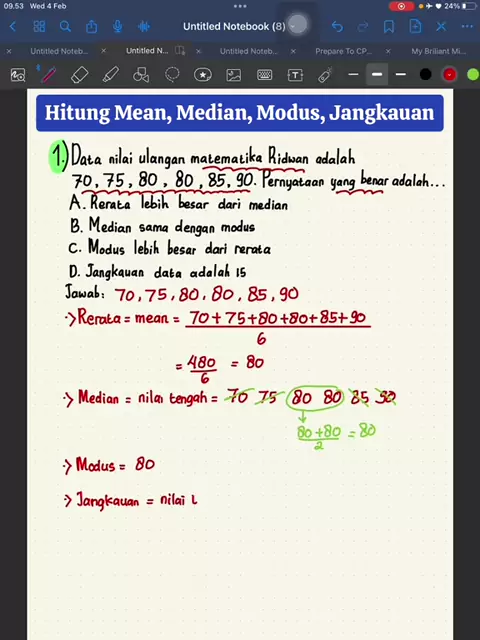 09.53 Wed 4 Feb
24%
Untitled Notebook (8)
Untitled Notebo
Untitled N
Untitled Notebo
Prepare To CP
My Briliant Mi
Hitung Mean, Median, Modus, Jangkauan
1.) Data nilai ulangan matematika Ridwan adalah
70, 75, 80, 80, 85, 90. Pernyataan yang benar adalah...
A. Rerata lebih besar dari median
B. Median sama dengan modus
C. Modus lebih besar dari rerata
D. Jangkauan data adalah 15
Jawab: 70, 75, 80, 80, 85, 90
:> Rerata = mean = 70+75+80+80+85+90
6
= 480/6 = 80
:> Median = nilai tengah = 70 75 80 80 85 90
80+80/2 = 80
:> Modus = 80
:> Jangkauan = nilai t